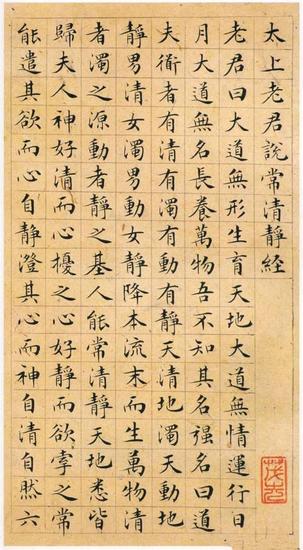 太上老君說常清靜經
老君曰大道無形生育天地大道無情運行日
月大道無名長養萬物吾不知其名強名曰道
夫衜者有清有濁有動有靜天清地濁天動地
靜男清女濁男動女靜降本流末而生萬物清
者濁之源動者靜之基人能常清靜天地悉皆
歸夫人神好清而心擾之心好靜而欲牽之常
能遣其欲而心自靜澄其心而神自清自然六